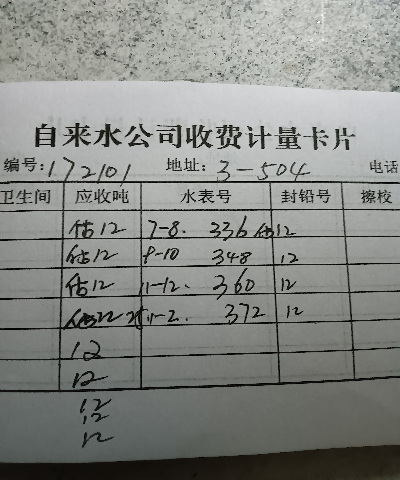 自来水公司收费计量卡片
编号:172101 地址:3-504 电话
卫生间 应收吨 水表号 封铅号 擦校
估12 7-8. 336 估12
估12 9-10 348 12
估12 11-12. 360 12
1-2. 372 12
12
12
12
12
12